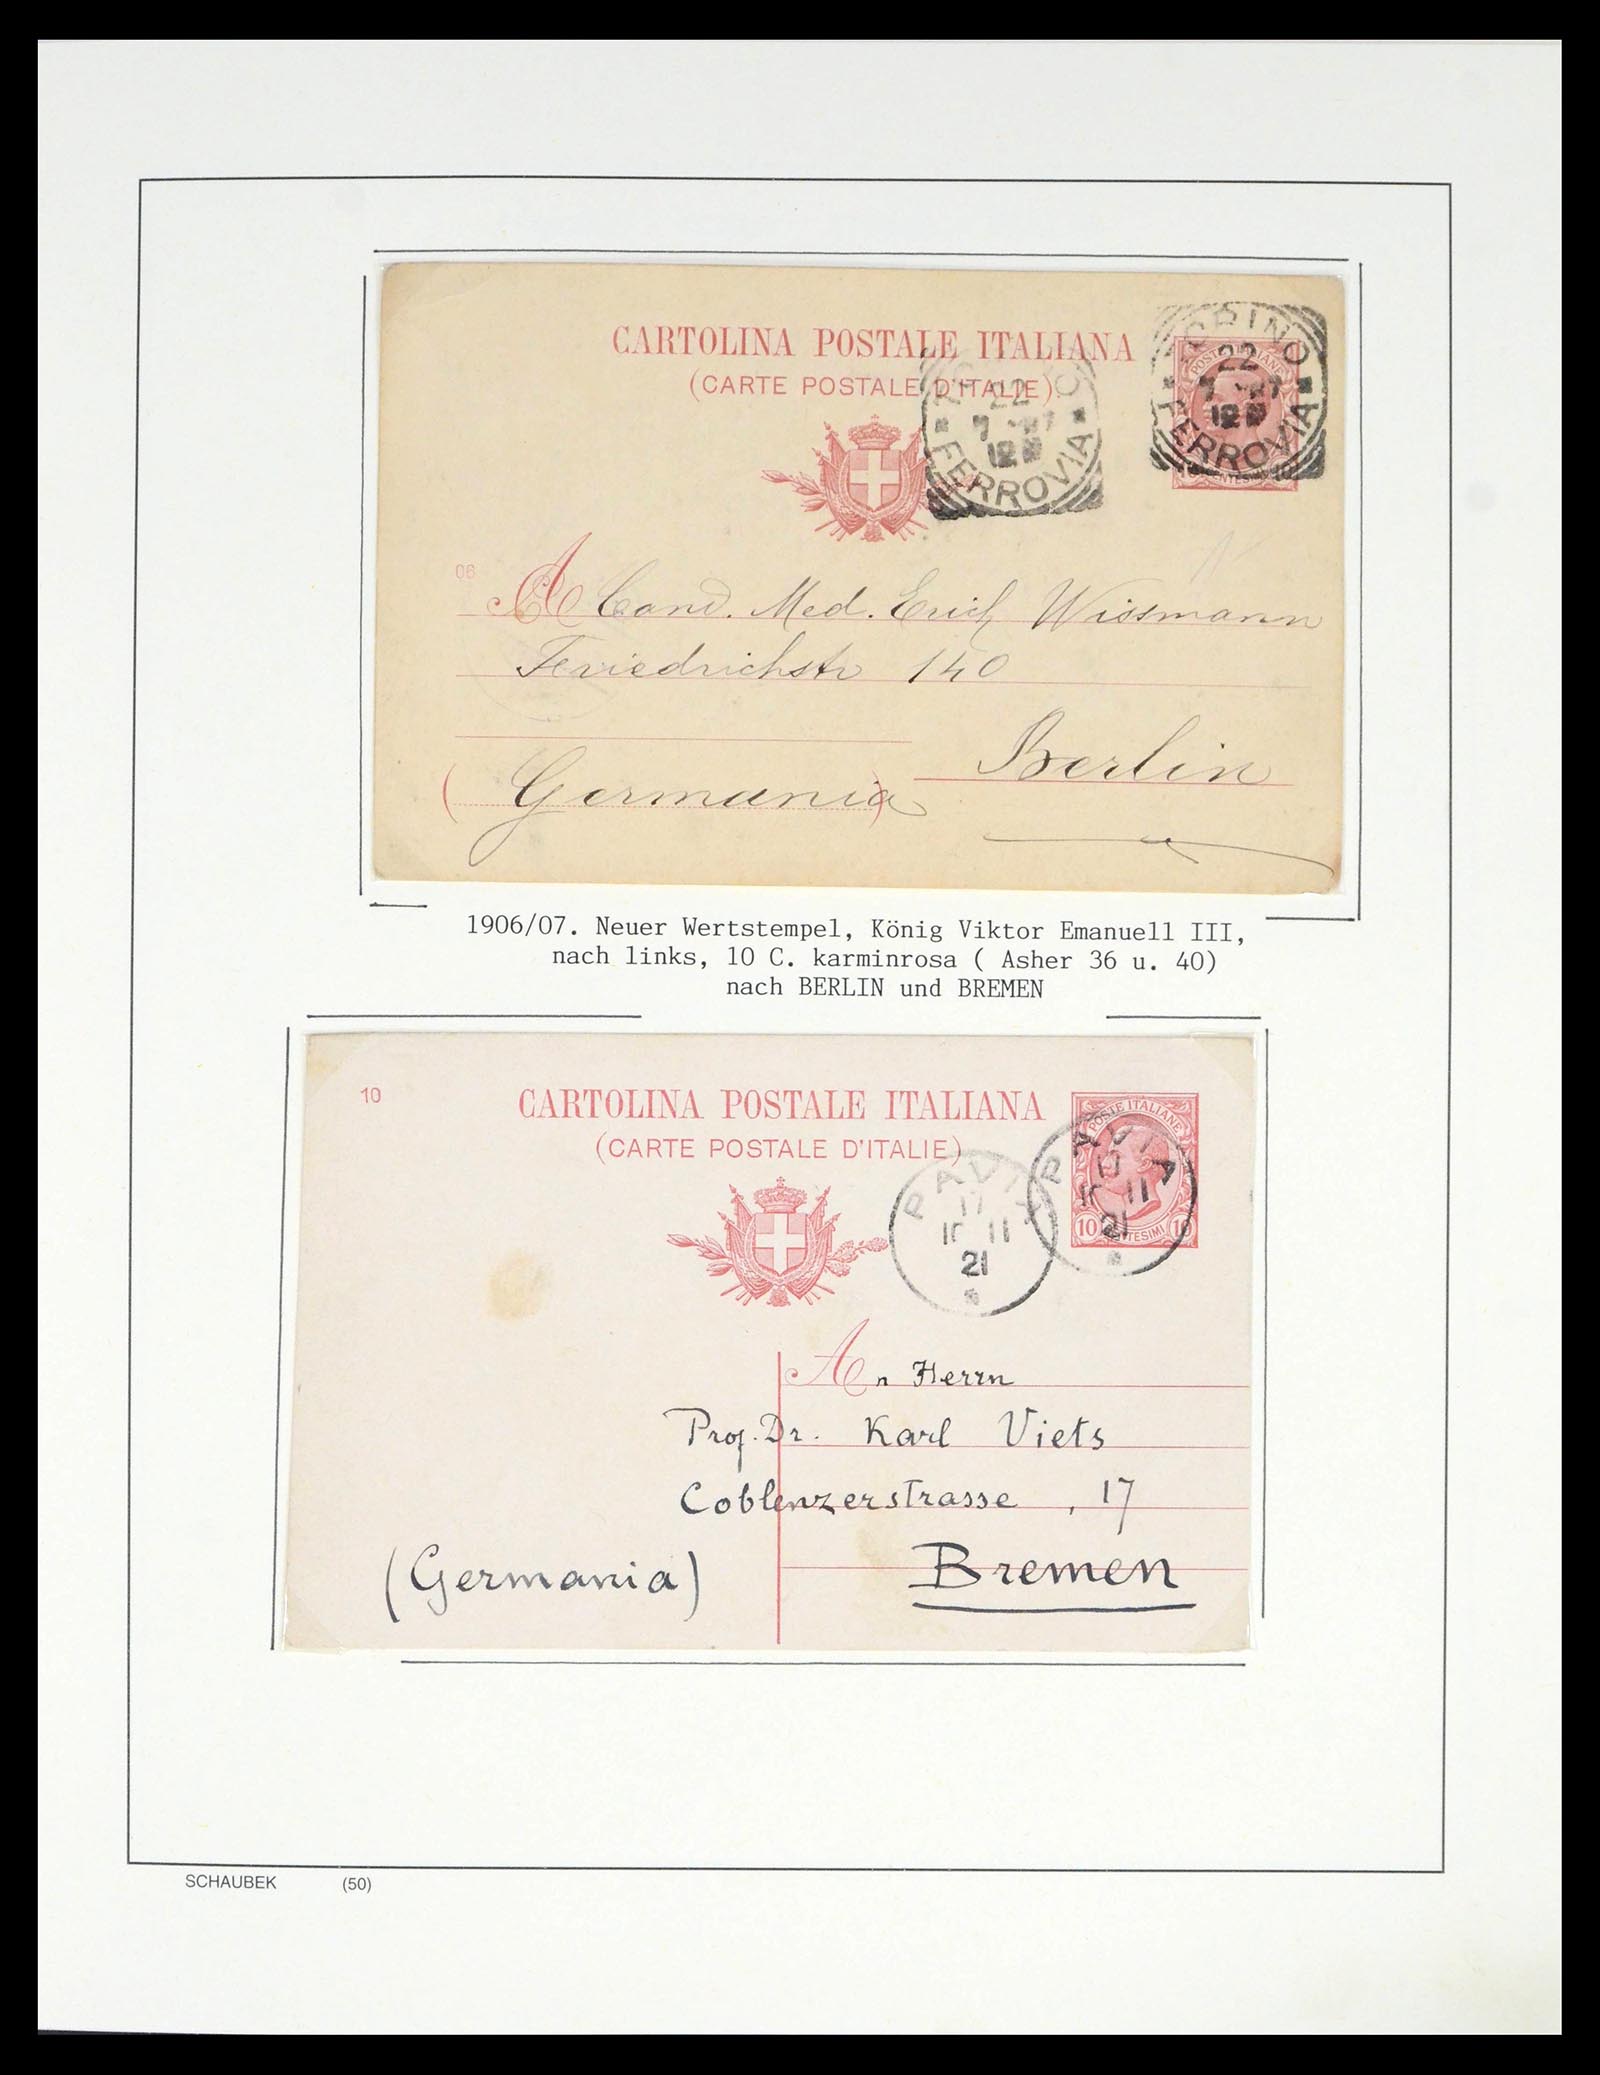 CARTOLINA POSTALE ITALIANA
(CARTE POSTALE D'ITALIE)
TORINO
22
12
FERROVIA
22
7
12
FERROVIA
POSTE ITALIANE
06
A Cand. Med. Erich Wissmann
Friedrichstr 140
Berlin
(Germania)
1906/07. Neuer Wertstempel, König Viktor Emanuell III,
nach links, 10 C. karminrosa ( Asher 36 u. 40)
nach BERLIN und BREMEN
10
CARTOLINA POSTALE ITALIANA
(CARTE POSTALE D'ITALIE)
POSTE ITALIANE
10 CENTESIMI 10
PAVIA
17
11
21
PAVIA
11
21
An Herrn
Prof. Dr. Karl Viets
Coblenzerstrasse, 17
Bremen
(Germania)
SCHAUBEK (50)